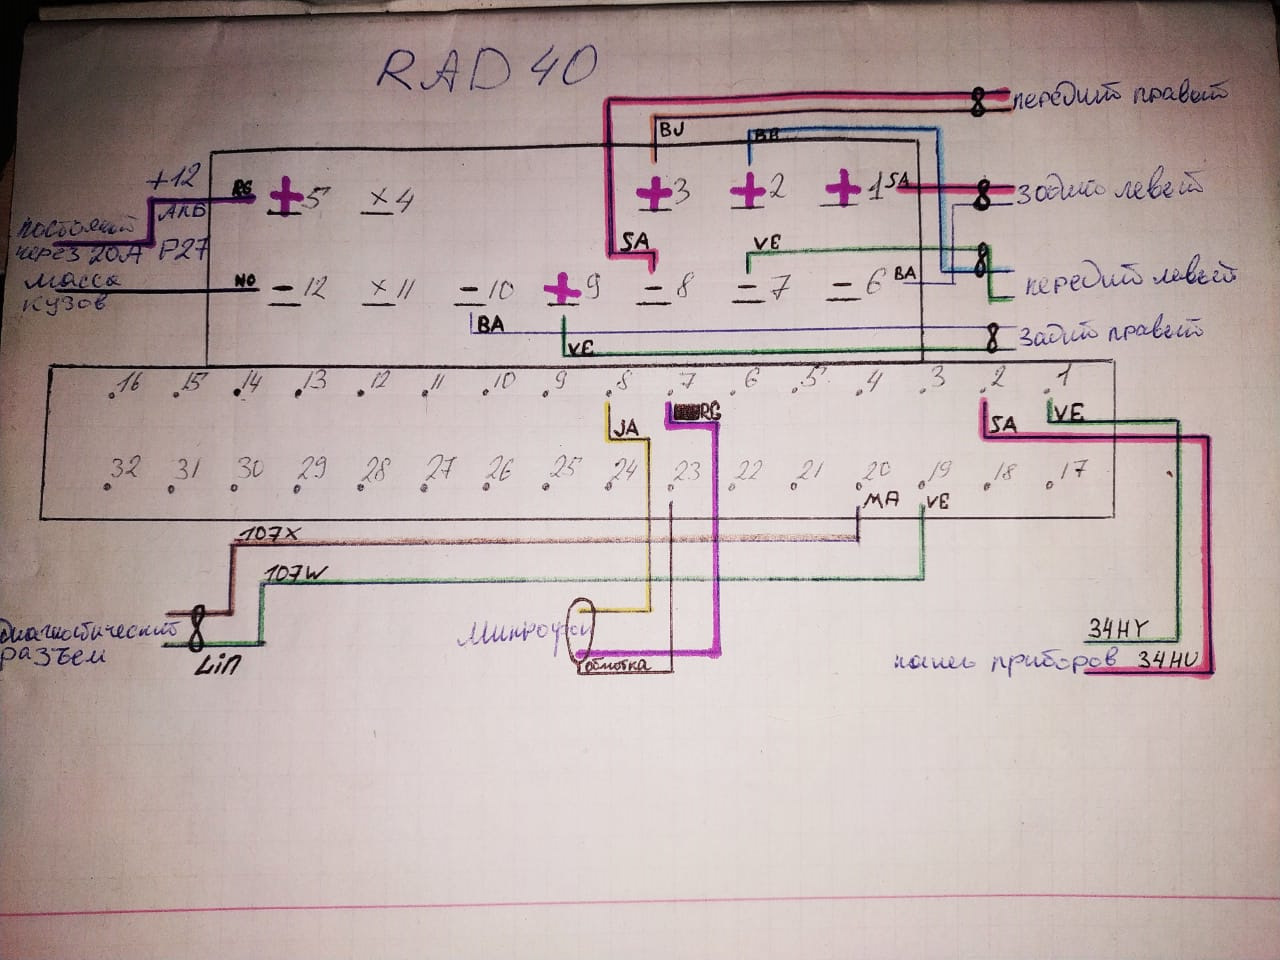 RAD 40
передний правый
BJ
BB
+12
RG
АКБ
+ 5
x 4
+ 3
+ 2
+ 1 SA
задний левый
постоянный
через 20A F27
SA
VE
масса
NO
- 12
x 11
- 10
+ 9
- 8
- 7
- 6 BA
передний левый
кузов
BA
VE
задний правый
16 15 14 13 12 11 10 9 8 7 6 5 4 3 2 1
JA
RG
SA
VE
32 31 30 29 28 27 26 25 24 23 22 21 20 19 18 17
MA VE
107X
107W
диагностический
разъем
Lin
микрофон
обмотка
34HY
панель приборов 34HU